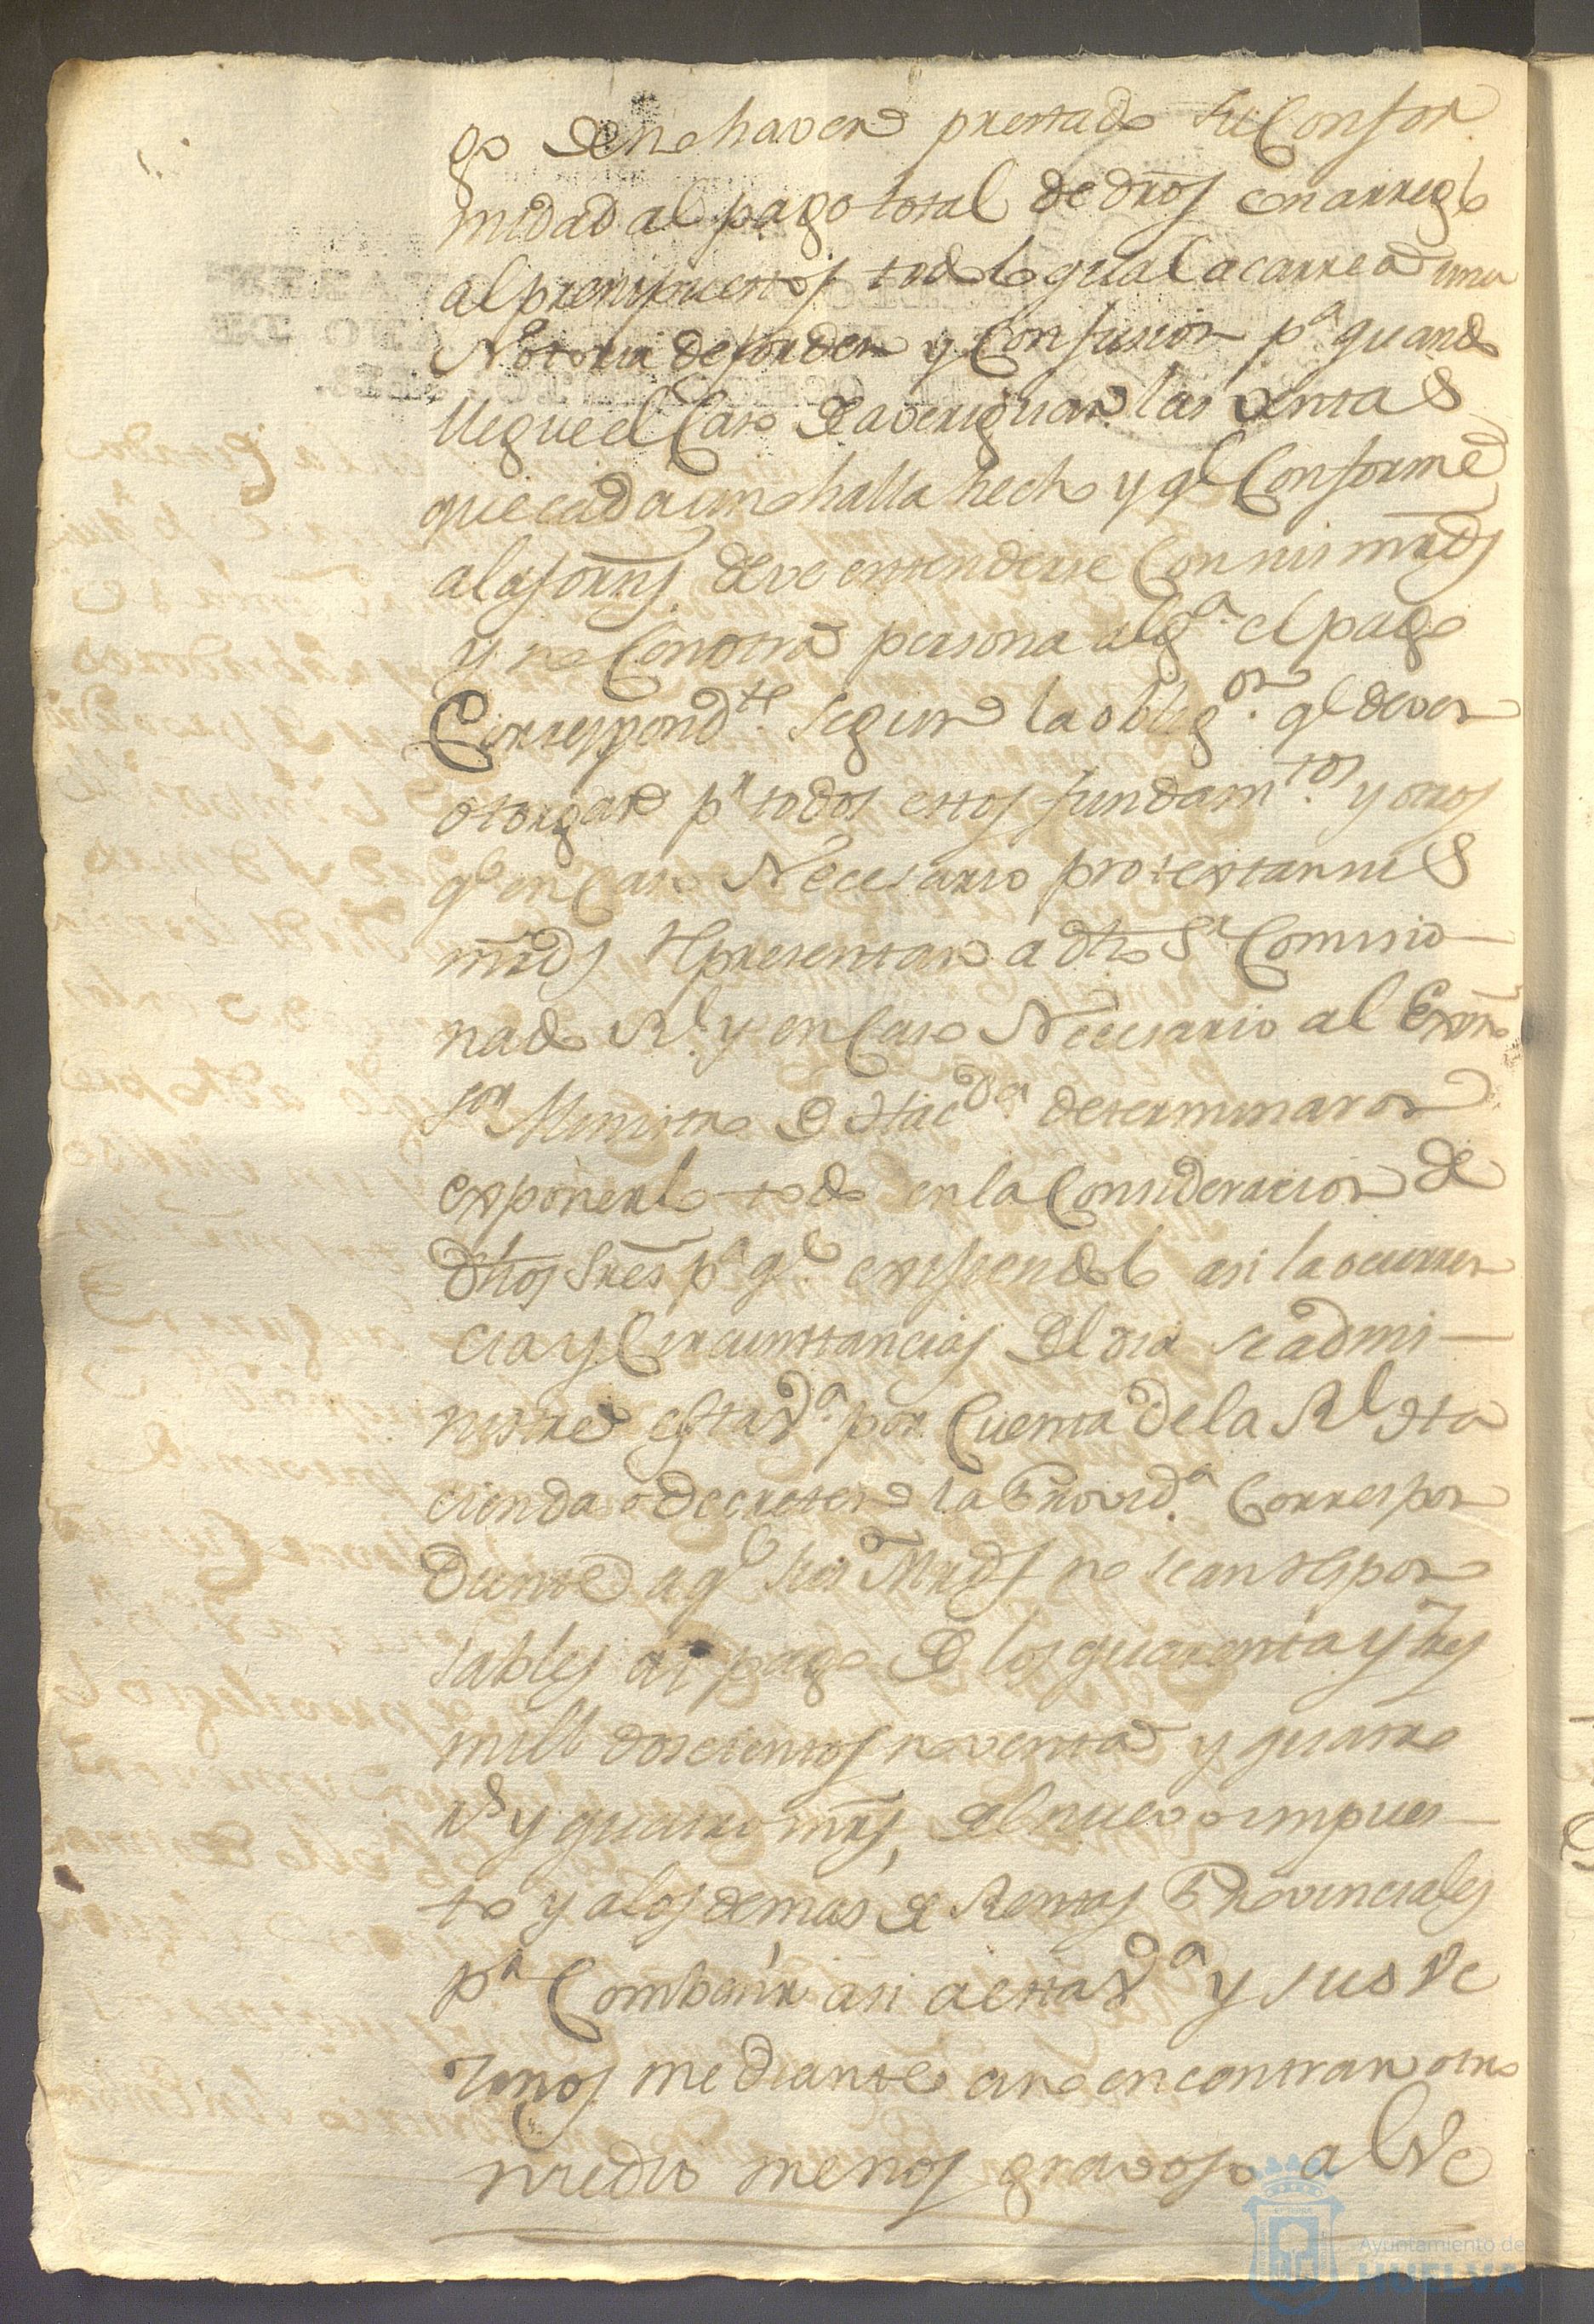 go de no haver prestado su Confor
midad al pago total de dros con arreglo
al presupuestos todo lo qual acarrea una
Notoria desorden y Confusion pª quando
llegue el Caso de averiguar las ventas
que cada uno halla hecho y qe Conforme
a las ornȷ deve entenderse Con sus mrds
y no Con otra persona algª el pago
Correspondte segun la obligon qe deven
otorgar pr todos estos fundamtos y otros
qe en Caso Necesario protextan sus
mrds Representar a dho Sr Comisio-
nado Rl y en Caso Necesario al Exmo
Sor Ministro de Hacda determinaron
exponerlo todo en la Consideracion de
dhos Sres pª qe exijiendolo asi la ocurren
cia y Circunstancias del dia se admi-
nistre esta Vª por Cuenta de la Rl Ha
cienda o decreten la Providª Correspon
diente a qe sus Mrds no sean respon
sables al pago de los quarenta y tres
mill doscientos noventa y quatro
rs y quatro mrs, del nuevo impues-
to y a los demas de Rentas Provinciales
pª Combenir asi a esta Vª y sus Ve
zinos mediante a no encontrar otro
medio menos gravoso al Ve
Ayuntamiento de
HUELVA